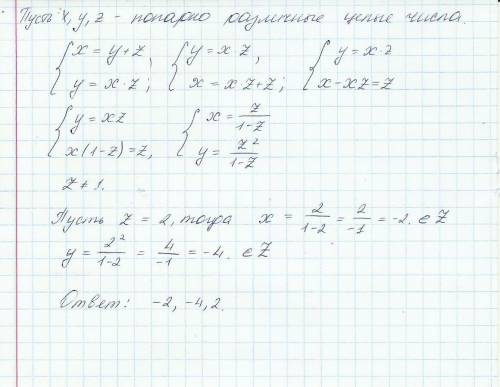 Пусть x, y, z - попарно различные целые числа.
{ x = y + z, y = x · z; { y = x z, x = x · z + z; { y = x · z x - x z = z
{ y = x z x (1 - z) = z, { x = z/(1-z) y = z²/(1-z)
z ≠ 1.
Пусть z = 2, тогда x = 2/(1-2) = 2/-1 = -2. ∈ Z
y = 2²/(1-2) = 4/-1 = -4. ∈ Z
Ответ: -2, -4, 2.